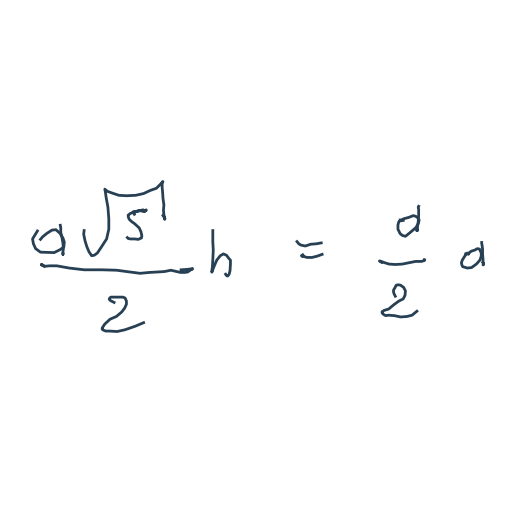 \frac{a\sqrt{5}}{2} h = \frac{a}{2} a